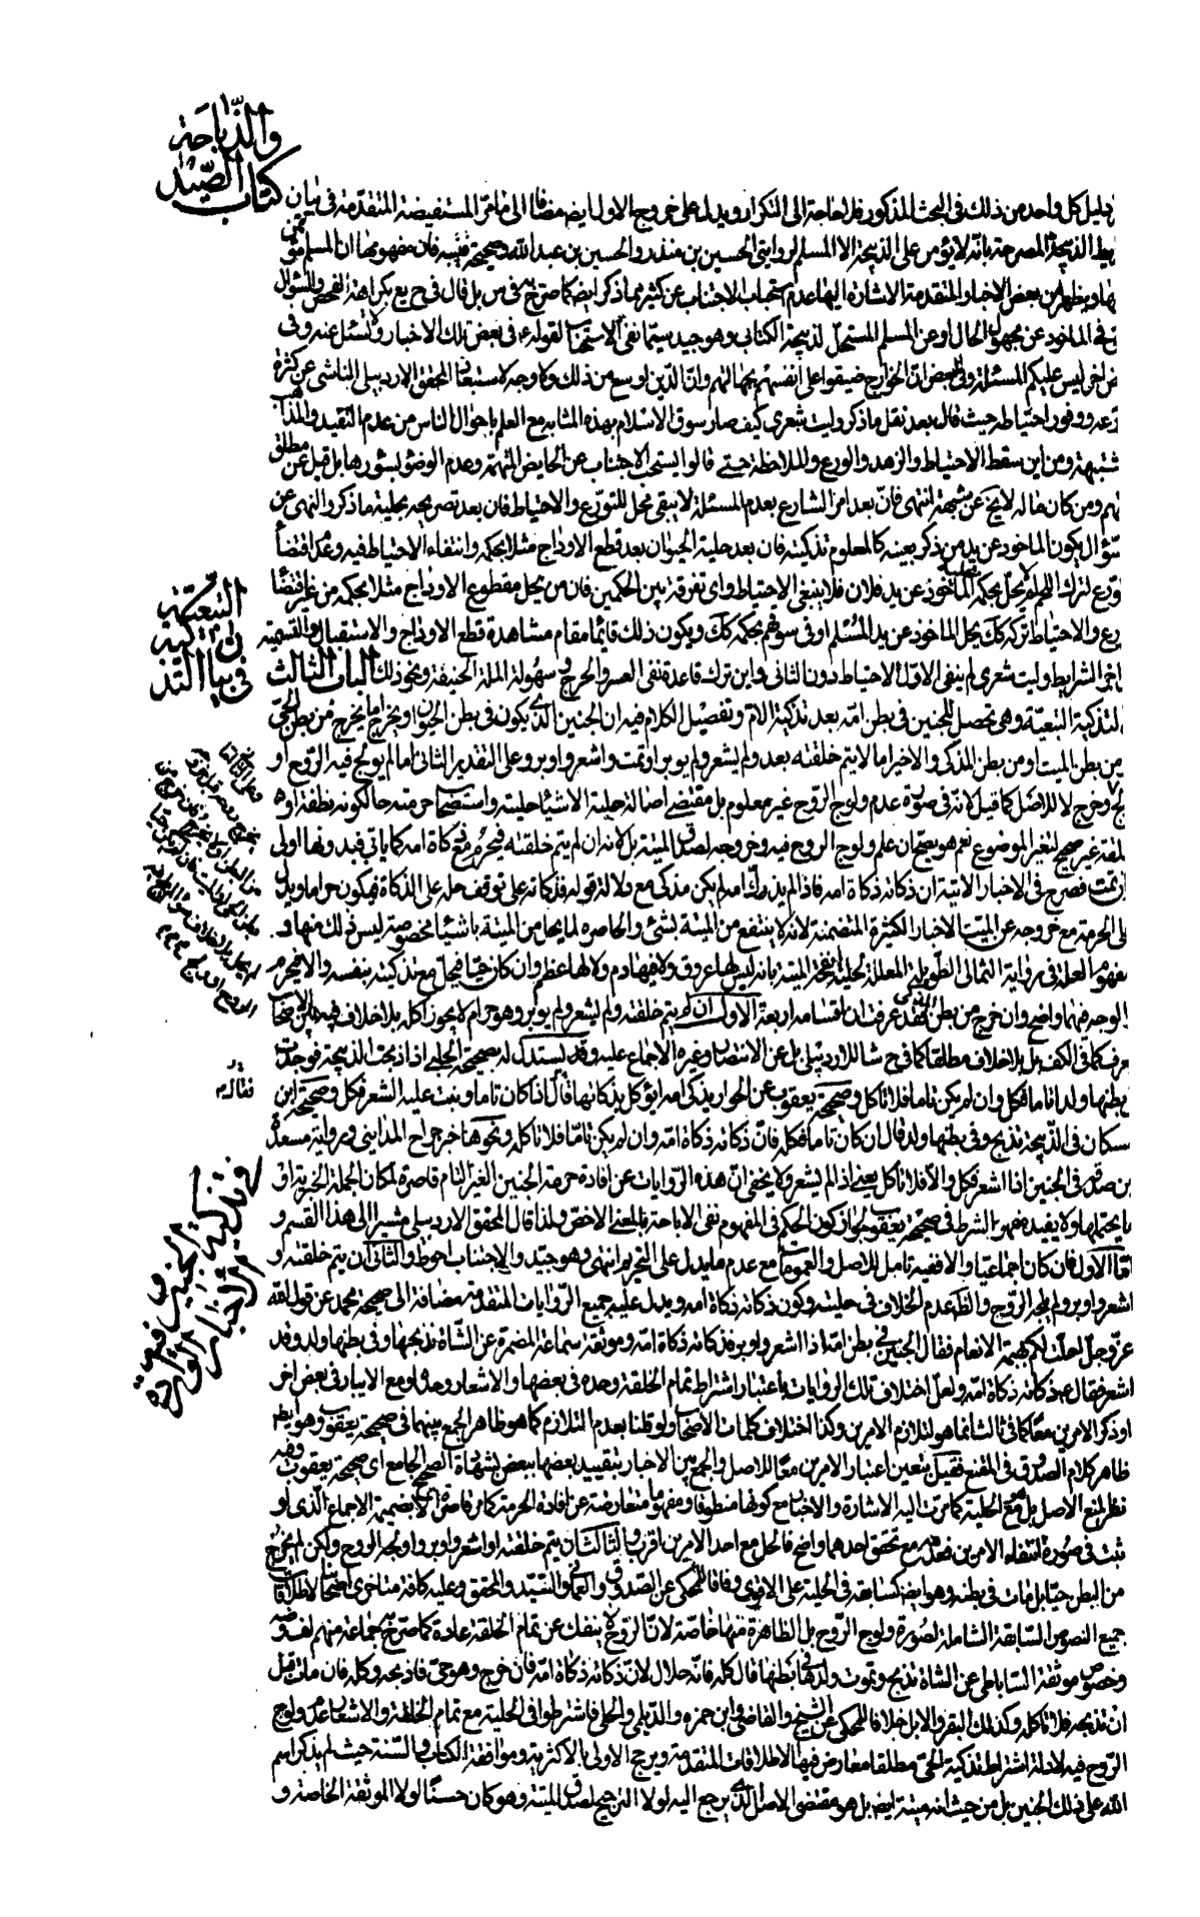 كتاب الصيد
والذباحة
دليل كل واحد من ذلك في البحث المذكور فلا حاجة الى التكرار ويدل على خروج الاول ايضا مضافا الى ما مر المستفيضة المتقدمة في بيان
الذبيحة المصرحة بانه لا يؤمن على الذبيحة الا المسلم لروايتي الحسين بن منذر والحسين بن عبد الله وصحيحة قتيبة فان مفهومها ان المسلم
ويظهر من بعض الاخبار المتقدمة الاشارة اليها عدم استحباب الاجتناب عن كثير مما ذكر ايضا كما صرح به في س بل قال في ح يع بكراهة الفحص والسؤال
في الماخوذ عن مجهول الحال او عن المسلم المستحل لذبيحة الكتابي وهو جيد سيما نفي الاستحباب لقوله ع في بعض تلك الاخبار ولا تسئل عنه وفي
اخر ليس عليكم المسئلة وفي بعض ان الخوارج ضيقوا على انفسهم بجهالتهم وان الدين اوسع من ذلك ولا وجه لاستبعاد المحقق الاردبيلي الناشي عن كثرة
ورعه ووفور احتياطه حيث قال بعد نقل ما ذكر وليت شعري كيف صار سوق الاسلام بهذه المثابة مع العلم باحوال الناس من عدم التقيد والمذاهب
المشتبهة ومن اين سقط الاحتياط والزهد والورع والملاحظة حتى قالوا يستحب الاجتناب عن الحايض المتهمة وعدم الوضوء بسؤرها بل قيل عن مطلق
المتهم ومن كان ماله لا يخ عن شبهة انتهى فان بعد امر الشارع بعدم المسئلة لا يبقى محل للتورع والاحتياط فان بعد تصريحه بحلية ما ذكر والنهى عن
السؤال يكون الماخوذ عن يد من ذكر بعينه كالمعلوم تذكيته فان بعد حلية الحيوان بعد قطع الاوداج مثلا بحكمه وانتفاء الاحتياط فيه وعدم اقتضاء
الورع لترك اللحم لو يحل بحكمه الماخوذ عن يد فلان فلا ينبغي الاحتياط واى تفرقة بين الحكمين فان من يحل مقطوع الاوداج مثلا بحكمه من غير اقتضاء
الورع والاحتياط تركه كك يحل الماخوذ عن يد المسلم او في سوقهم بحكمه كك ويكون ذلك قائما مقام مشاهدة قطع الاوداج والاستقبال والتسمية
واخر الشرايط وليت شعري لم ينفى الاول الاحتياط دون الثاني واين ترك قاعدة نفى العسر والحرج وسهولة الملة الحنيفة ونحو ذلك الباب الثالث
في بيان التذ
كية
التبعية
التذكية التبعية وهي تحصل للجنين في بطن امه بعد تذكية الام وتفصيل الكلام فيه ان الجنين الذي يكون في بطن الحيوان او يخرج اما يخرج من بطن الحي
او من بطن الميت او من بطن المذكى والاخير اما لا يتم خلقته بعد ولم يشعر ولم يوبر او تمت واشعر او اوبر وعلى التقدير الثاني اما لم يولج فيه الروح او
ولج وخرج لا للاصل كما قيل لانه في صورة عدم ولوج الروح غير معلوم بل مقتضى اصالة حلية الاشياء حليته واستصحاب حرمته حال كونه نطفة او
علقة غير صحيح لتغير الموضوع نعم هو يصح ان علم ولوج الروح فيه وخروجه لصدق الميتة بل لانه ان لم يتم خلقته فيحرم مع ذكاة امه كما ياتي فبدونها اولى
وان تمت فصرح في الاخبار الاتية ان ذكاته ذكاة امه فاذا لم يذك امه لم يكن مذكى مع دلالة قوله فذكاته على توقف حله على الذكاة فيكون حراما ويدل
على الحرمة مع خروجه عن الميت الاخبار الكثيرة المتضمنة لانه لا ينتفع من الميتة بشئ والحاصره لما يحل من الميتة باشياء مخصوصة ليس ذلك منها و
مفهوم العلة في رواية الثمالى الطويلة المعللة لحلية انفحة الميتة بانه ليس لها عروق ولا فيها دم ولا لها عظم وان كان حيا فيحل مع تذكيته بنفسه والا فيحرم
والوجه فيهما واضح وان خرج من بطن المذكى فقد عرفت ان اقسامه اربعة الاول ان لم يتم خلقته ولم يشعر ولم يوبر وهو حرام لا يجوز اكله بلا خلاف فيه بين الاصحاب
يعرف كما في الكف بل بلا خلاف مطلقا كما في ح شا للاردبيلى بل عن الانتصار وغيره الاجماع عليه وقد يستدل له بصحيحة الحلبي اذا ذبحت الذبيحة فوجدت
في بطنها ولدا تاما فكل وان لم يكن تاما فلا تاكل وصحيحة يعقوب عن الحوار يذكى امه ايؤكل بذكاتها فقال اذا كان تاما ونبت عليه الشعر فكل وصحيحة ابن
مسكان في الذبيحة تذبح وفي بطنها ولد قال ان كان تاما فكله فان ذكاته ذكاة امه وان لم يكن تاما فلا تاكله ونحوها خبر جراح المدايني ورواية مسعدة
بن صدقة في الجنين اذا اشعر فكل والا فلا تاكل يعني اذا لم يشعر ولا يخفى ان هذه الروايات عن افادة حرمة الجنين الغير التام قاصرة لمكان الجملة الخبرية او
ما يحتملها ولا يفيده مفهوم الشرط في صحيحة يعقوب لجواز كون الحكم في المفهوم نفى الاباحة بالمعنى الاخص ولذا قال المحقق الاردبيلى مشيرا الى هذا القسم و
اما الاول فان كان اجماعيا والا ففيه تامل للاصل والعمومات مع عدم ما يدل على التحريم انتهى وهو جيد والاجتناب احوط والثاني ان يتم خلقته و
اشعر او اوبر ولم يلجه الروح والظ عدم الخلاف في حليته وكون ذكاته ذكاة امه ويدل عليه جميع الروايات المتقدمة مضافة الى صحيحة محمد عن قول الله
عز وجل احلت لكم بهيمة الانعام فقال الجنين في بطن امه اذا اشعر واوبر فذكاته ذكاة امه وموثقة سماعة المضمرة عن الشاة نذبحها وفي بطنها ولد وقد
اشعر فقال ع ذكاته ذكاة امه ولعل اختلاف تلك الروايات باعتبار اشتراط تمام الخلقة وحده في بعضها والاشعار وحده او مع الايبار في بعض اخر
او ذكر الامرين معا كما في ثالث انما هو لتلازم الامرين وكذا اختلاف كلمات الاصحاب ولو قلنا بعدم التلازم كما هو ظاهر الجمع بينهما في صحيحة يعقوب وهو ايضا
ظاهر كلام الصدوق في المقنع فقيل يتعين اعتبار الامرين معا للاصل والجمع بين الاخبار بتقييد بعضها ببعض بشهادة الصحيح الجامع اى صحيحة يعقوب وفيه
نظر لمنع الاصل بل مع الحلية كما مرت اليه الاشارة والاخبار مع كونها منطوقا ومفهوما متعارضة عن افادة الحرمة كما مر قاصرة الا بضميمة الاجماع الذي لو
ثبت في صورة انتفاء الامرين فعدمه مع تحقق احدهما واضح فالحل مع احد الامرين اقرب الثالث ان يتم خلقته او اشعر او اوبر واولجه الروح ولكن لم يخرج
من البطن حيا بل مات في بطنه وهو ايضا كسابقه في الحلية على الاقوى وفاقا للمحكى عن الصدوق والعماني والسيد والمحقق وعليه كافة متاخرى اصحابنا لاطلاقات
جميع النصوص السابقة الشاملة لصورة ولوج الروح بل الظاهرة فيها خاصة لان الروح لا ينفك عن تمام الخلقة عادة كما صرح به جماعة منهم لف وضه
وخصوص موثقة الساباطى عن الشاة تذبح ويموت ولدها في بطنها قال كله فانه حلال لان ذكاته ذكاة امه فان خرج وهو حى فاذبحه وكله فان مات قبل
ان تذبحه فلا تاكله وكذلك البقر والابل خلافا للمحكى عن الشيخ والقاضي وابن حمزه والديلمي والحلي فاشترطوا في الحلية مع تمام الخلقة والاشعار عدم ولوج
الروح فيه لادلة اشتراط تذكية الحى مطلقا معارض فيها الاطلاقات المتقدمة ويرجح الاولى بالاكثرية وموافقة الكتاب والسنة حيث لم يذكر اسم
الله على ذلك الجنين بل من حيث انه ميتة ايضا بل هو مقتضى الاصل الذي يرجع اليه لولا الترجيح لصدق الميتة وهو كان حسنا لولا الموثقة الخاصة و
في تذكية الجنين
والاخبار الواردة